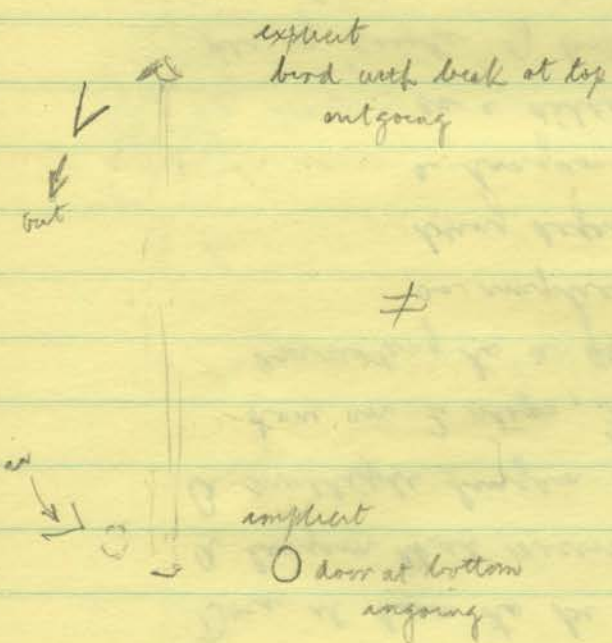 explicit
bird with beak at top
outgoing
out
≠
in
implicit
O door at bottom
ingoing